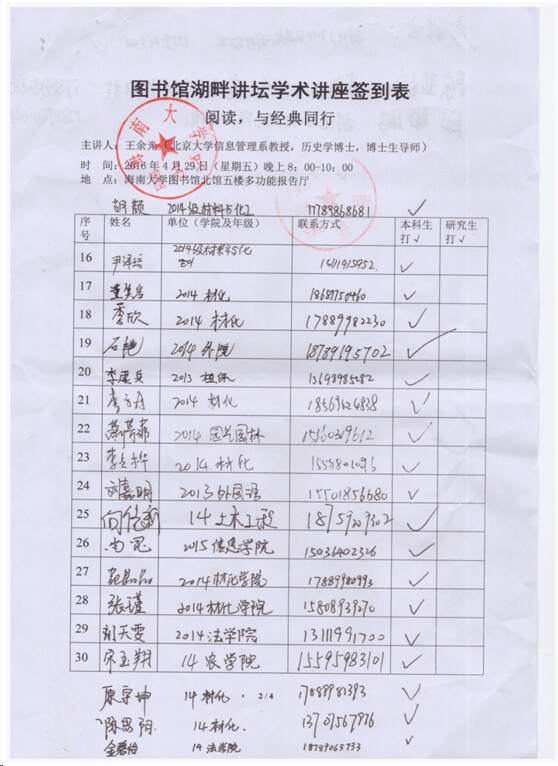 图书馆湖畔讲坛学术讲座签到表
阅读，与经典同行
主讲人：王余光（北京大学信息管理系教授，历史学博士，博士生导师）
时 间：2016年4月29日（星期五）晚上8：00-10：00
地 点：海南大学图书馆北馆五楼多功能报告厅
胡颖 2014级材料与化工 17789868681 ✓
序号 姓名 单位（学院及年级） 联系方式 本科生打√ 研究生打√
16 ✓
17 2014 材化 18689750460 ✓
18 季欣 2014 材化 17889982230 ✓
19 石艳 2014 外院 18789195702 ✓
20 2013 13698985282 ✓
21 2014 材化 18369624838 ✓
22 2014 园艺园林 15160219612 ✓
23 2014 材化 ✓
24 刘嘉明 2013外国语 15501856680 ✓
25 14土木工程 18759209302 ✓
26 尚昆 2015信息学院 15036402326 ✓
27 2014材化学院 17889980993 ✓
28 张瑾 2014材化学院 15808939270 ✓
29 刘天雯 2014法学院 13111991700 ✓
30 宋玉翔 14农学院 15595983101 ✓
原宇坤 14材化 2/4 17889981393 ✓
陈思阳 14材化 13707567976 ✓
14法学院 18789065733 ✓